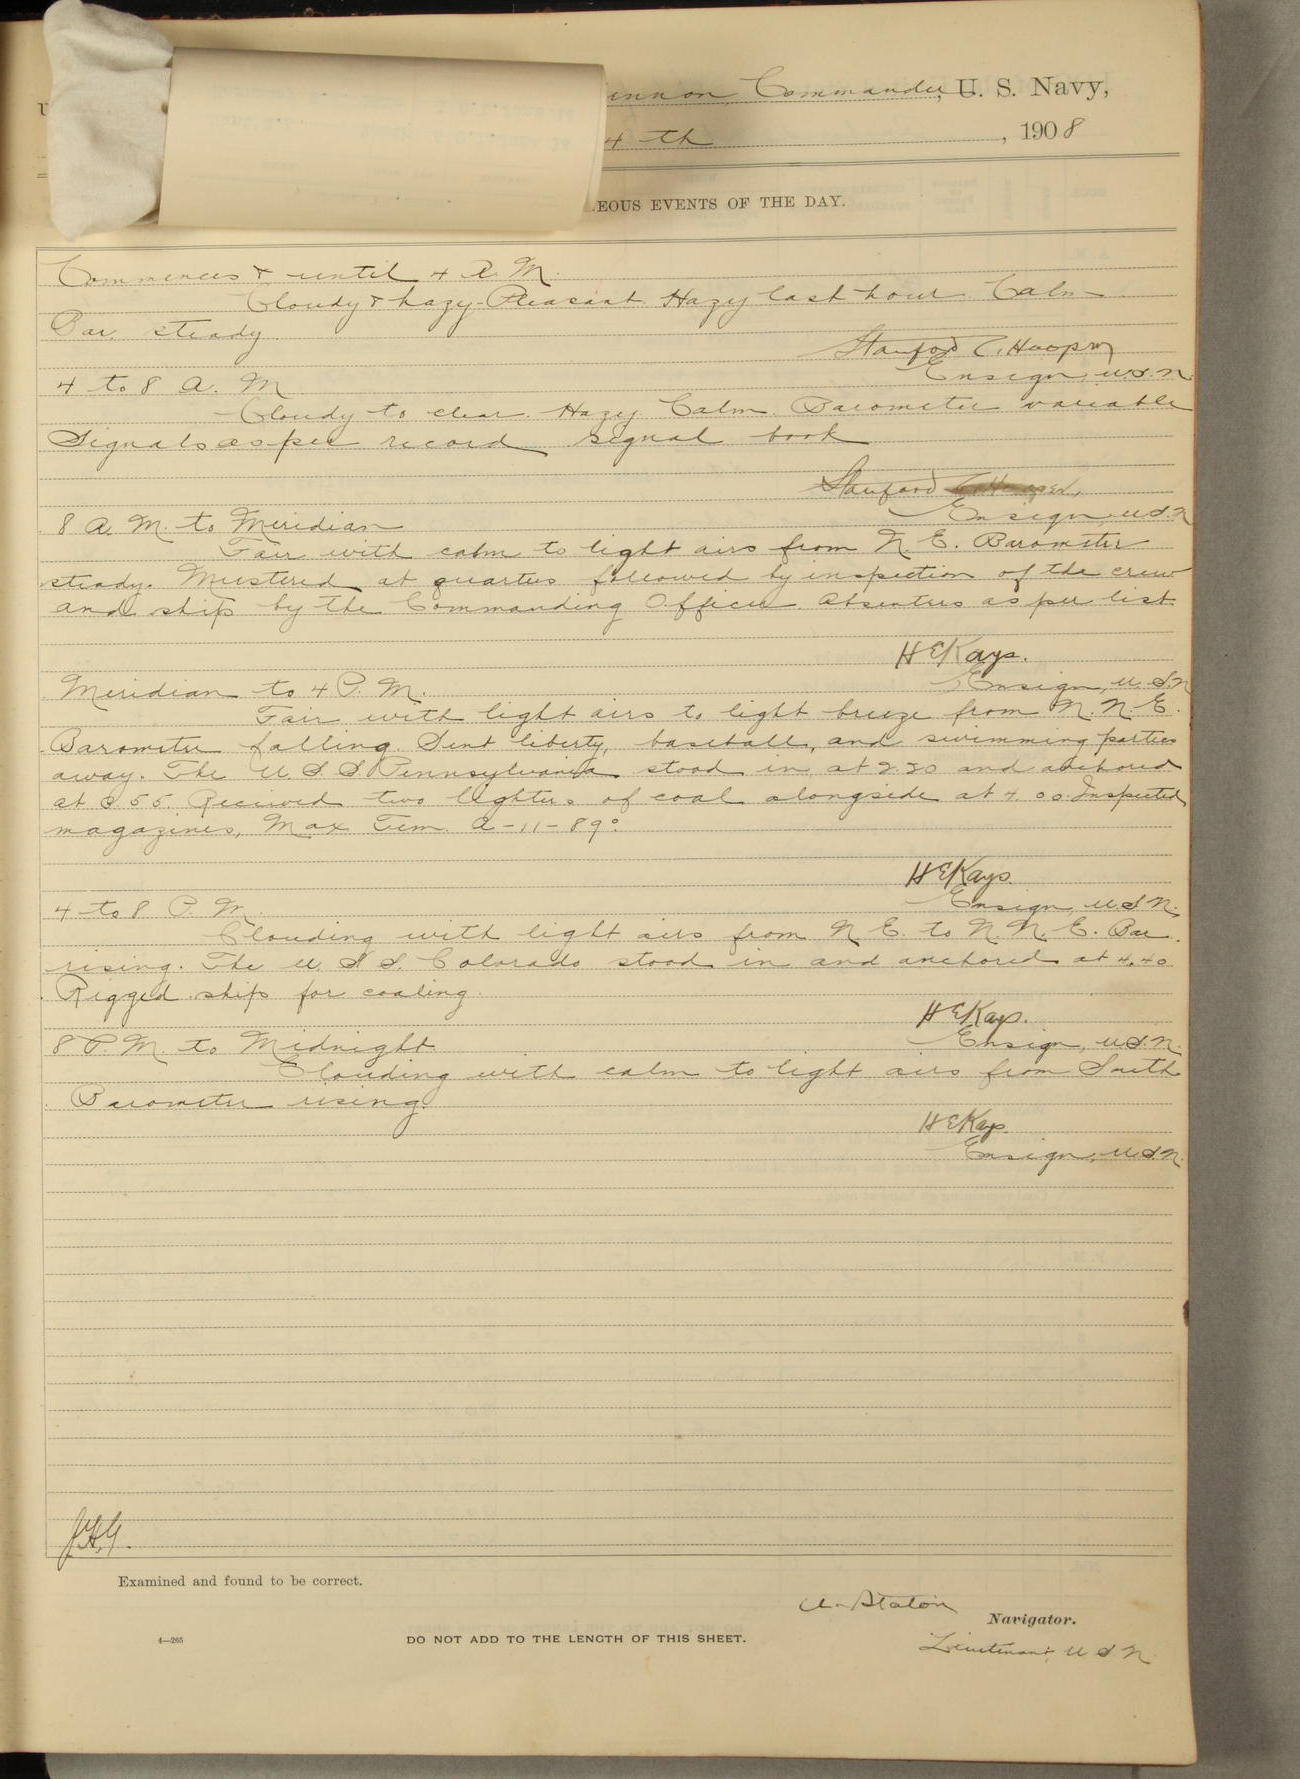 Commander, U. S. Navy,
4 th , 1908
EOUS EVENTS OF THE DAY.
Commences & until 4 A. M.
Cloudy & hazy. Pleasant. Hazy last hour. Calm
Bar. steady.
Stanford C. Hooper
Ensign, U.S.N.
4 to 8 A. M.
Cloudy to clear. Hazy. Calm. Barometer variable
Signals as per record signal book
Stanford C. Hooper,
Ensign, U.S.N
8 A. M. to Meridian
Fair with calm to light airs from N. E. Barometer
steady. Mustered at quarters followed by inspection of the crew
and ship by the Commanding Officer. Absentees as per list.
H E Kays.
Ensign, U.S.N
Meridian to 4 P. M.
Fair with light airs to light breeze from N. N. E.
Barometer falling. Sent liberty, baseball, and swimming parties
away. The U. S. S. Pennsylvania stood in at 2.20 and anchored
at 55. Received two lighters of coal alongside at 4.00. Inspected
magazines, Max Tem. A-11-89°.
H E Kays.
Ensign, U.S.N.
4 to 8 P. M.
Clouding with light airs from N E. to N. N. E. Bar.
rising. The U. S. S. Colorado stood in and anchored at 4.40
Rigged ship for coaling.
H E Kays.
Ensign, U.S.N.
8 P. M. to Midnight
Clouding with calm to light airs from South
Barometer rising.
H E Kays.
Ensign, U.S.N.
Examined and found to be correct.
Staton
Navigator.
4—265
DO NOT ADD TO THE LENGTH OF THIS SHEET.
Lieutenant, U S N.